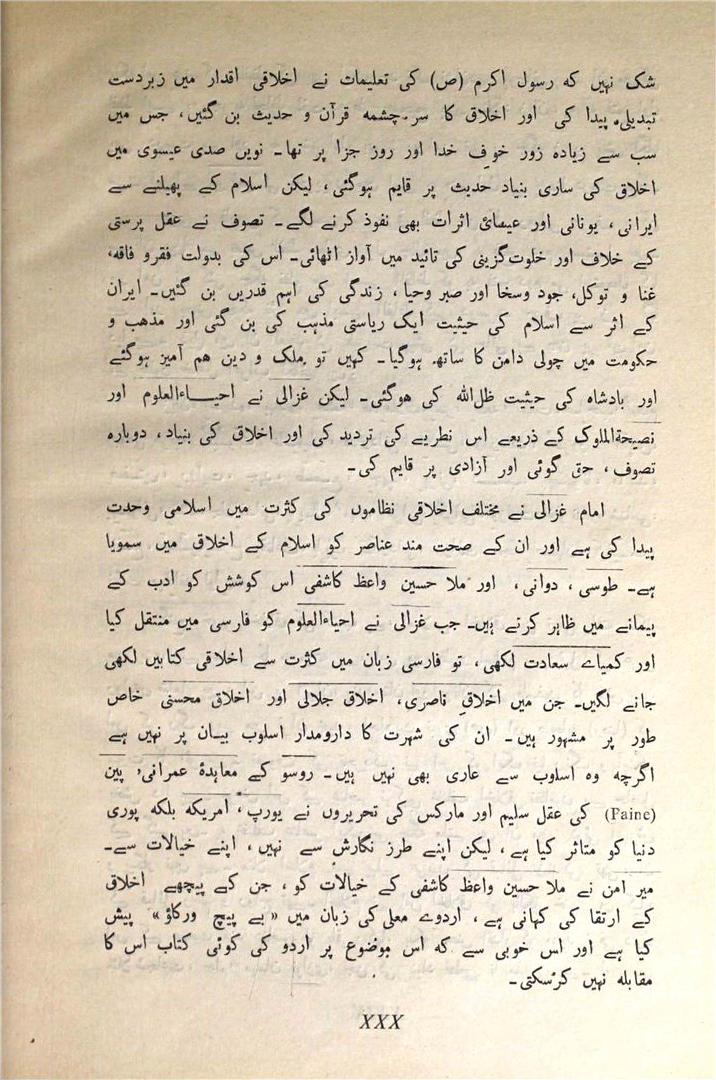 شک نہیں کہ رسول اکرم (ص) کی تعلیمات نے اخلاقی اقدار میں زبردست
تبدیلی پیدا کی اور اخلاق کا سرچشمہ قرآن و حدیث بن گئیں، جس میں
سب سے زیادہ زور خوفِ خدا اور روز جزا پر تھا۔ نویں صدی عیسوی میں
اخلاق کی ساری بنیاد حدیث پر قایم ہوگئی، لیکن اسلام کے پھیلنے سے
ایرانی، یونانی اور عیسائی اثرات بھی نفوذ کرنے لگے۔ تصوف نے عقل پرستی
کے خلاف اور خلوت‌گزینی کی تائید میں آواز اٹھائی۔ اس کی بدولت فقر و فاقہ،
غنا و توکل، جود وسخا اور صبر وحیا، زندگی کی اہم قدریں بن گئیں۔ ایران
کے اثر سے اسلام کی حیثیت ایک ریاستی مذہب کی بن گئی اور مذہب و
حکومت میں چولی دامن کا ساتھ ہوگیا۔ کہیں تو ملک و دین ہم آمیز ہوگئے
اور بادشاہ کی حیثیت ظل‌اللہ کی ہوگئی۔ لیکن غزالی نے احیاءالعلوم اور
نصیحۃالملوک کے ذریعے اس نطریے کی تردید کی اور اخلاق کی بنیاد، دوبارہ
تصوف، حق گوئی اور آزادی پر قایم کی۔
امام غزالی نے مختلف اخلاقی نظاموں کی کثرت میں اسلامی وحدت
پیدا کی ہے اور ان کے صحت مند عناصر کو اسلام کے اخلاق میں سمویا
ہے۔ طوسی، دوانی، اور ملا حسین واعظ کاشفی اس کوشش کو ادب کے
پیمانے میں ظاہر کرتے ہیں۔ جب غزالی نے احیاءالعلوم کو فارسی میں منتقل کیا
اور کمیاے سعادت لکھی، تو فارسی زبان میں کثرت سے اخلاقی کتابیں لکھی
جانے لگیں۔ جن میں اخلاقِ ناصری، اخلاق جلالی اور اخلاق محسنی خاص
طور پر مشہور ہیں۔ ان کی شہرت کا دارومدار اسلوب بیان پر نہیں ہے
اگرچہ وہ اسلوب سے عاری بھی نہیں ہیں۔ روسو کے معاہدۂ عمرانی، پین
(Paine) کی عقل سلیم اور مارکس کی تحریروں نے یورپ، امریکہ بلکہ پوری
دنیا کو متاثر کیا ہے، لیکن اپنے طرز نگارش سے نہیں، اپنے خیالات سے۔
میر امن نے ملا حسین واعظ کاشفی کے خیالات کو، جن کے پیچھے اخلاق
کے ارتقا کی کہانی ہے، اردوے معلی کی زبان میں «بے پیچ ورکاؤ» پیش
کیا ہے اور اس خوبی سے کہ اس موضوع پر اردو کی کوئی کتاب اس کا
مقابلہ نہیں کرسکتی۔
XXX